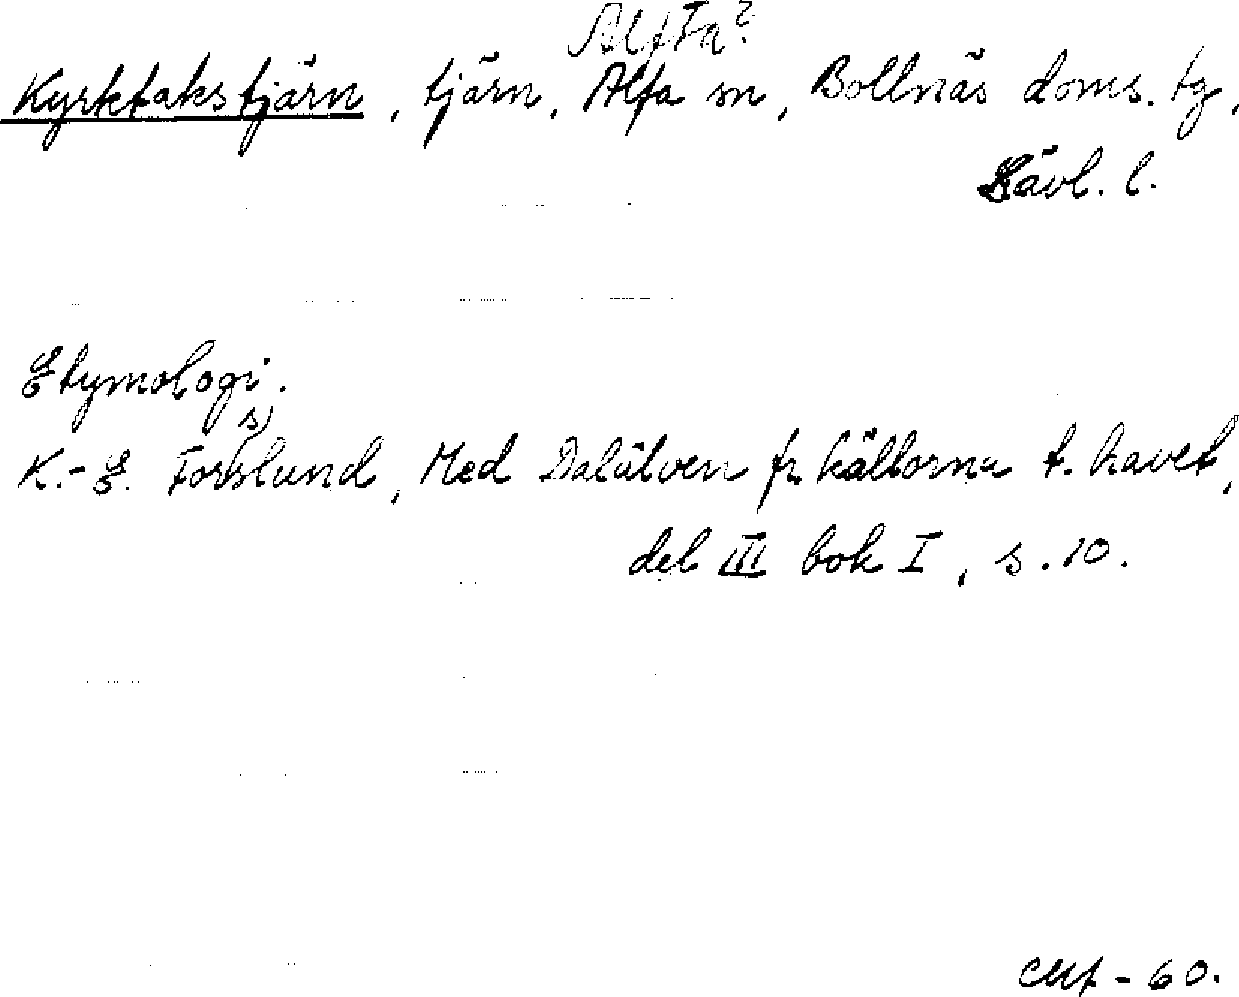 Alfta?
Kyrktakstjärn, tjärn, Alfa sn, Bollnäs doms. tg,
Gävl. l.
Etymologi.
s)
K.-E. Forslund, Med Dalälven fr. källorna t. havet,
del III bok I, s. 10.
- 60.